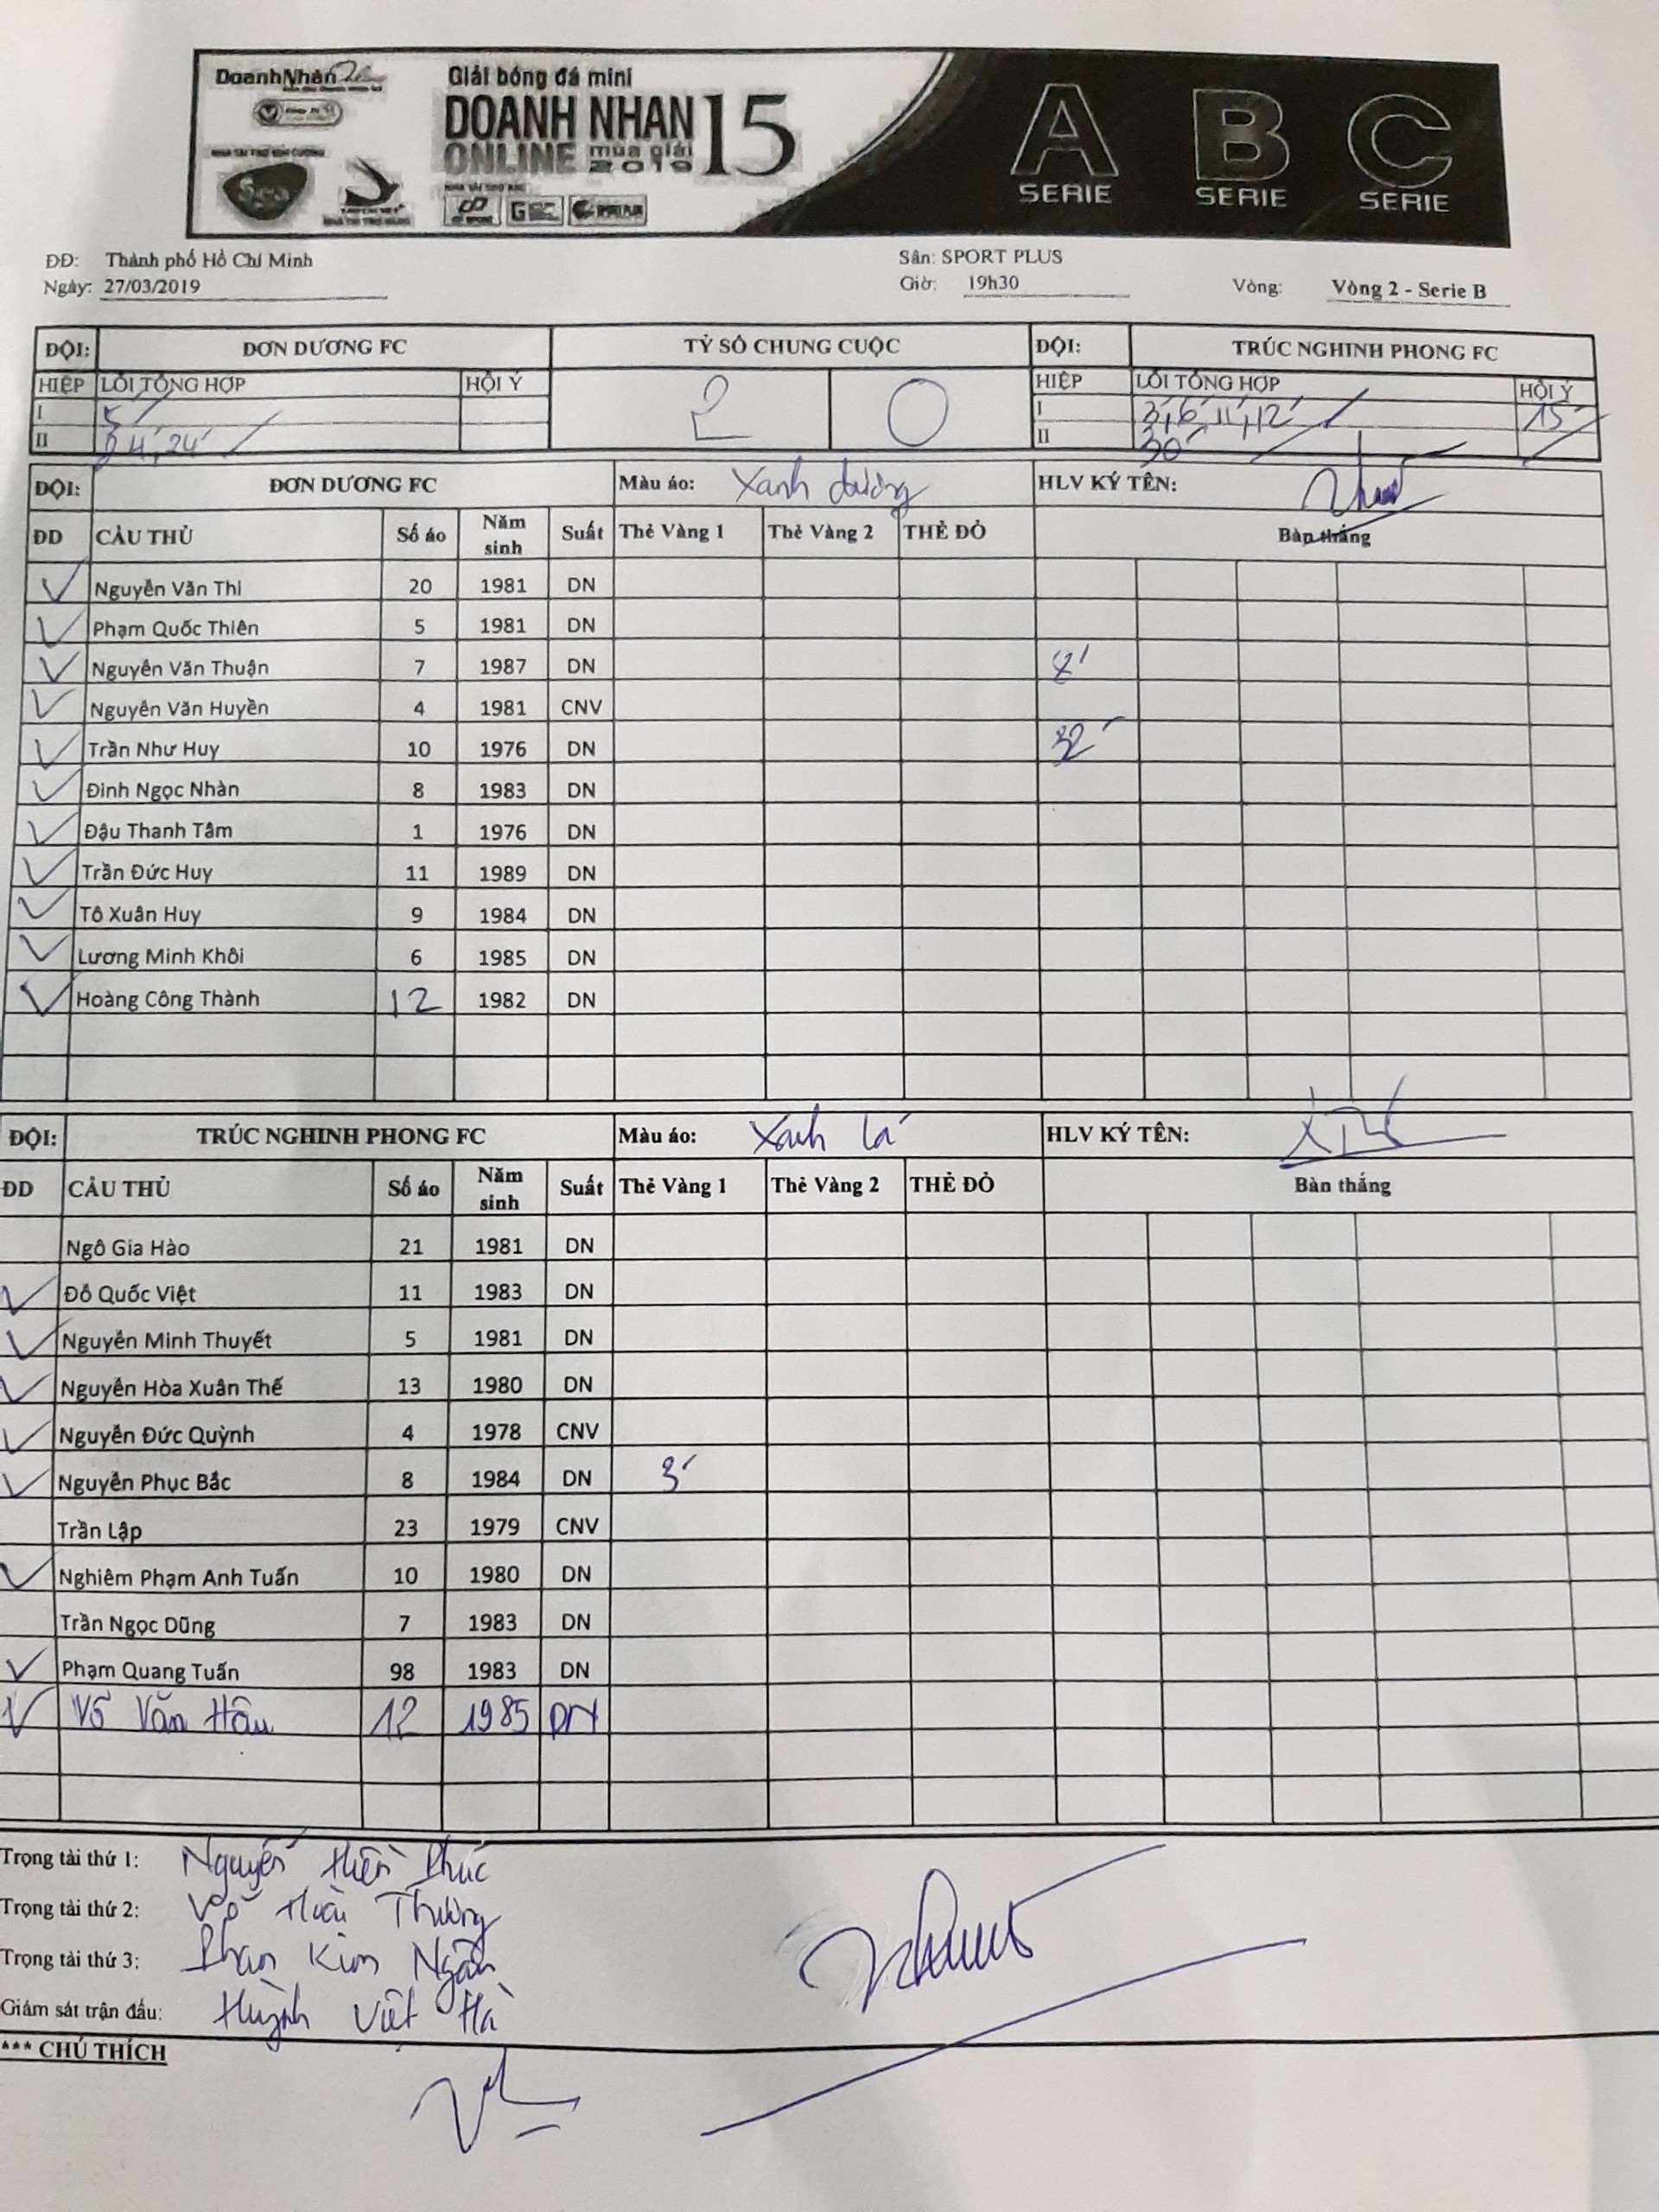 DoanhNhân
Giải bóng đá mini
DOANH NHAN 15
ONLINE mùa giải 2019
A B C
SERIE SERIE SERIE
SPORT PLUS
ĐĐ: Thành phố Hồ Chí Minh Sân: SPORT PLUS
Ngày: 27/03/2019 Giờ: 19h30 Vòng: Vòng 2 - Serie B
ĐỘI: ĐƠN DƯƠNG FC TỶ SỐ CHUNG CUỘC ĐỘI: TRÚC NGHINH PHONG FC
HIỆP LỖI TỔNG HỢP HỘI Ý 2 0 HIỆP LỖI TỔNG HỢP HỘI Ý
I 5' I 3', 6', 11', 12' 15'
II 4', 24' II 30'
ĐỘI: ĐƠN DƯƠNG FC Màu áo: Xanh dương HLV KÝ TÊN:
ĐD CẦU THỦ Số áo Năm sinh Suất Thẻ Vàng 1 Thẻ Vàng 2 THẺ ĐỎ Bàn thắng
Nguyễn Văn Thi 20 1981 DN
Phạm Quốc Thiên 5 1981 DN
Nguyễn Văn Thuận 7 1987 DN 8'
Nguyễn Văn Huyền 4 1981 CNV
Trần Như Huy 10 1976 DN 32'
Đinh Ngọc Nhàn 8 1983 DN
Đậu Thanh Tâm 1 1976 DN
Trần Đức Huy 11 1989 DN
Tô Xuân Huy 9 1984 DN
Lương Minh Khôi 6 1985 DN
Hoàng Công Thành 12 1982 DN
ĐỘI: TRÚC NGHINH PHONG FC Màu áo: Xanh lá HLV KÝ TÊN:
ĐD CẦU THỦ Số áo Năm sinh Suất Thẻ Vàng 1 Thẻ Vàng 2 THẺ ĐỎ Bàn thắng
Ngô Gia Hào 21 1981 DN
Đỗ Quốc Việt 11 1983 DN
Nguyễn Minh Thuyết 5 1981 DN
Nguyễn Hòa Xuân Thế 13 1980 DN
Nguyễn Đức Quỳnh 4 1978 CNV
Nguyễn Phục Bắc 8 1984 DN 3'
Trần Lập 23 1979 CNV
Nghiêm Phạm Anh Tuấn 10 1980 DN
Trần Ngọc Dũng 7 1983 DN
Phạm Quang Tuấn 98 1983 DN
Võ Văn Hậu 12 1985 DN
Trọng tài thứ 1: Nguyễn Hiền Phúc
Trọng tài thứ 2: Võ Hoài Thương
Trọng tài thứ 3: Phan Kim Ngân
Giám sát trận đấu: Huỳnh Việt Hà
*** CHÚ THÍCH